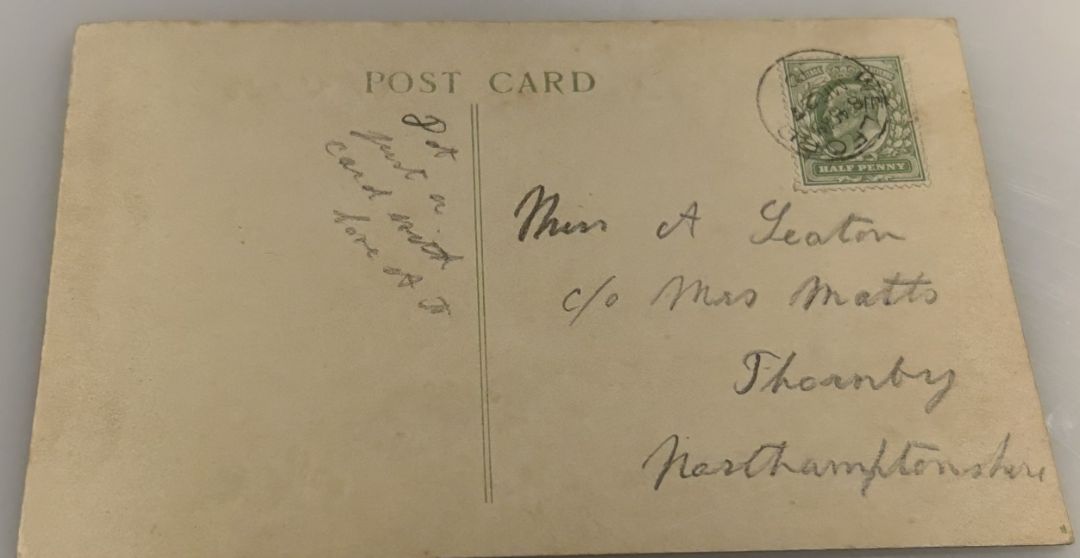 POST CARD
HALF PENNY
just a
card with
love
Miss A Seaton
c/o Mrs Matts
Thornby
Northamptonshire